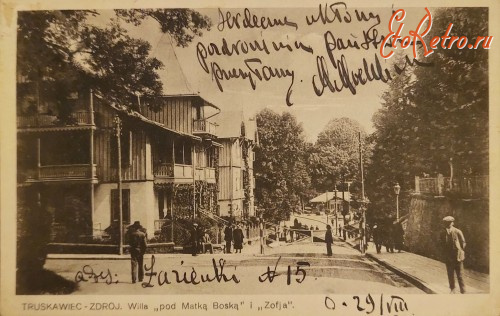 serdeczne ukłony
pozdrowienia państwu
przesyłamy.
EtoRetro.ru
adres: Łazienki № 15.
TRUSKAWIEC-ZDRÓJ. Willa „pod Matką Boską” i „Zofja”.
29/VIII